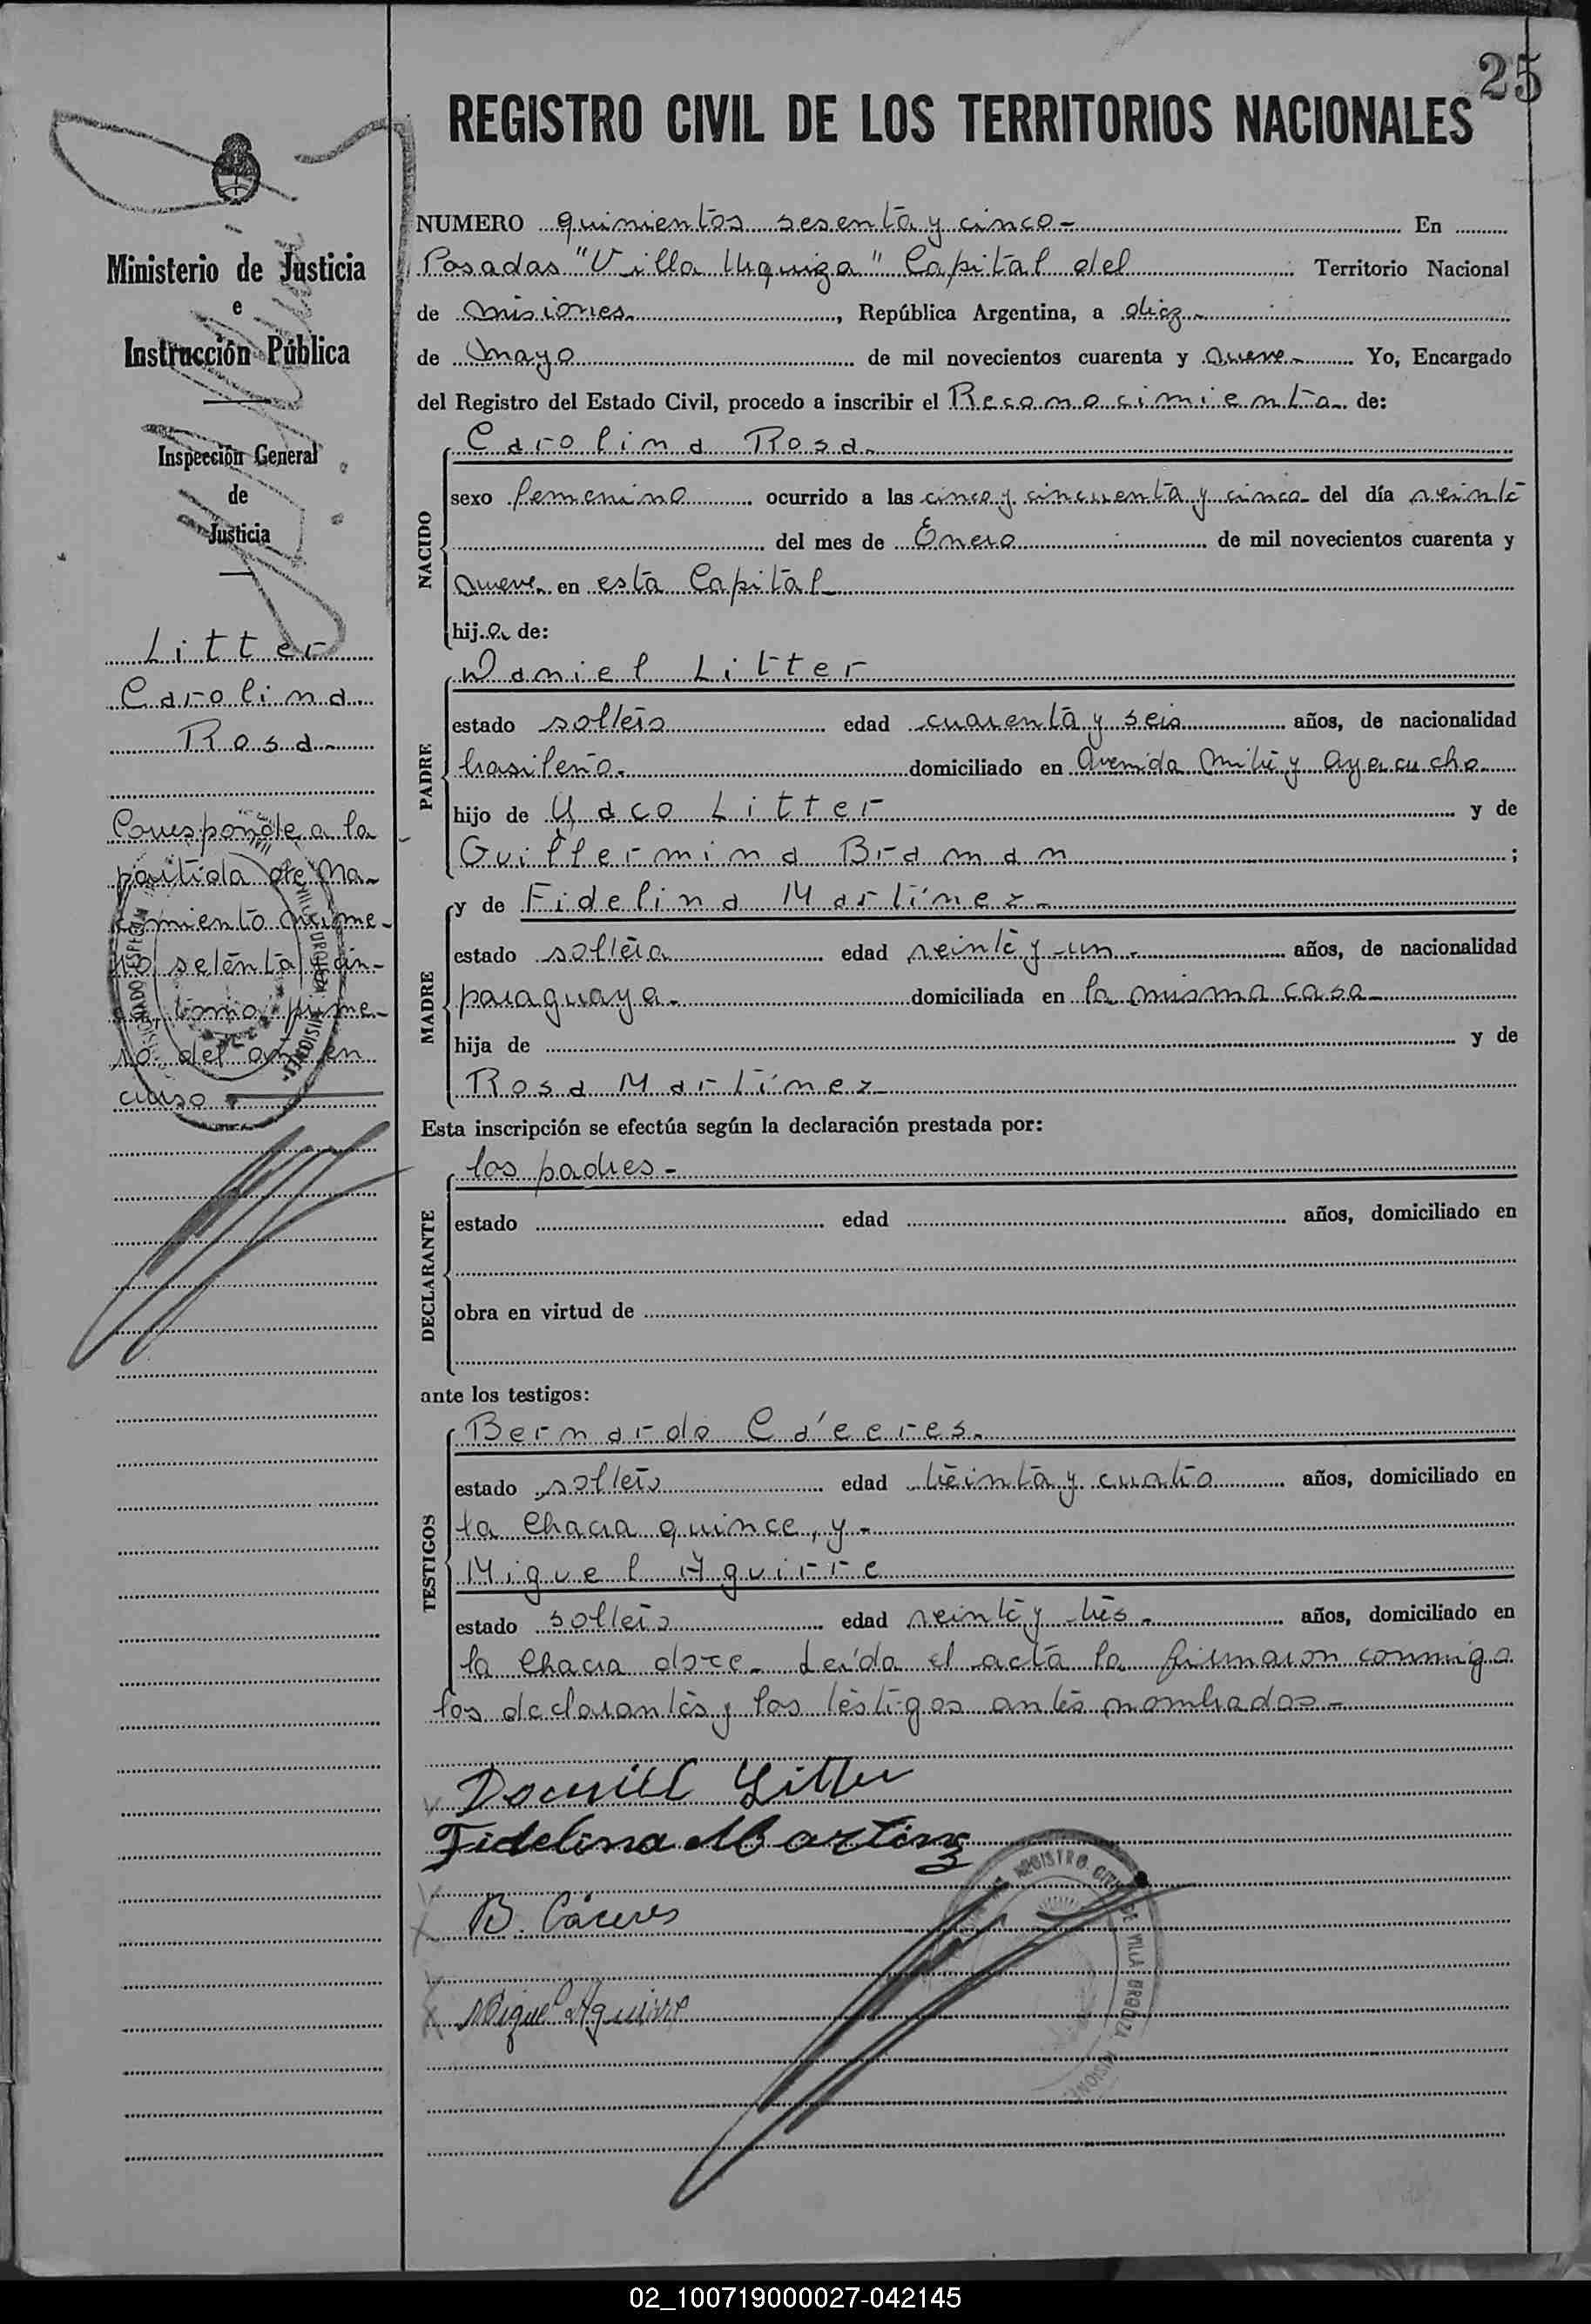 25
REGISTRO CIVIL DE LOS TERRITORIOS NACIONALES
Ministerio de Justicia
e
Instrucción Pública
Inspección General
de
Justicia
Litter
Carolina
Rosa
Corresponde a la
partida de na-
cimiento núme-
ro setenta y cin-
co, tomo prime-
ro del año en
curso
NUMERO quinientos sesenta y cinco- En
Posadas "Villa Urquiza" Capital del Territorio Nacional
de Misiones, República Argentina, a diez
de Mayo de mil novecientos cuarenta y nueve Yo, Encargado
del Registro del Estado Civil, procedo a inscribir el Reconocimiento de:
NACIDO
Carolina Rosa
sexo femenino ocurrido a las cinco y cincuenta y cinco del día veinte
del mes de Enero de mil novecientos cuarenta y
nueve en esta Capital
hija de:
PADRE
Daniel Litter
estado soltero edad cuarenta y seis años, de nacionalidad
brasileño domiciliado en Avenida Mitre y Ayacucho
hijo de Yaco Litter y de
Guillermina Braman ;
MADRE
y de Fidelina Martínez
estado soltera edad veinte y un años, de nacionalidad
paraguaya domiciliada en la misma casa
hija de y de
Rosa Martínez
Esta inscripción se efectúa según la declaración prestada por:
DECLARANTE
los padres-
estado edad años, domiciliado en
obra en virtud de
ante los testigos:
TESTIGOS
Bernardo Cáceres
estado soltero edad treinta y cuatro años, domiciliado en
la Chacra quince, y
Miguel Aguirre
estado soltero edad veinte y tres años, domiciliado en
la Chacra doce. Leída el acta la firmaron conmigo
los declarantes y los testigos antes nombrados
Daniel Litter
Fidelina Martinez
B. Cáceres
Miguel Aguirre
REGISTRO CIVIL DE VILLA URQUIZA MISIONES
02_100719000027-042145